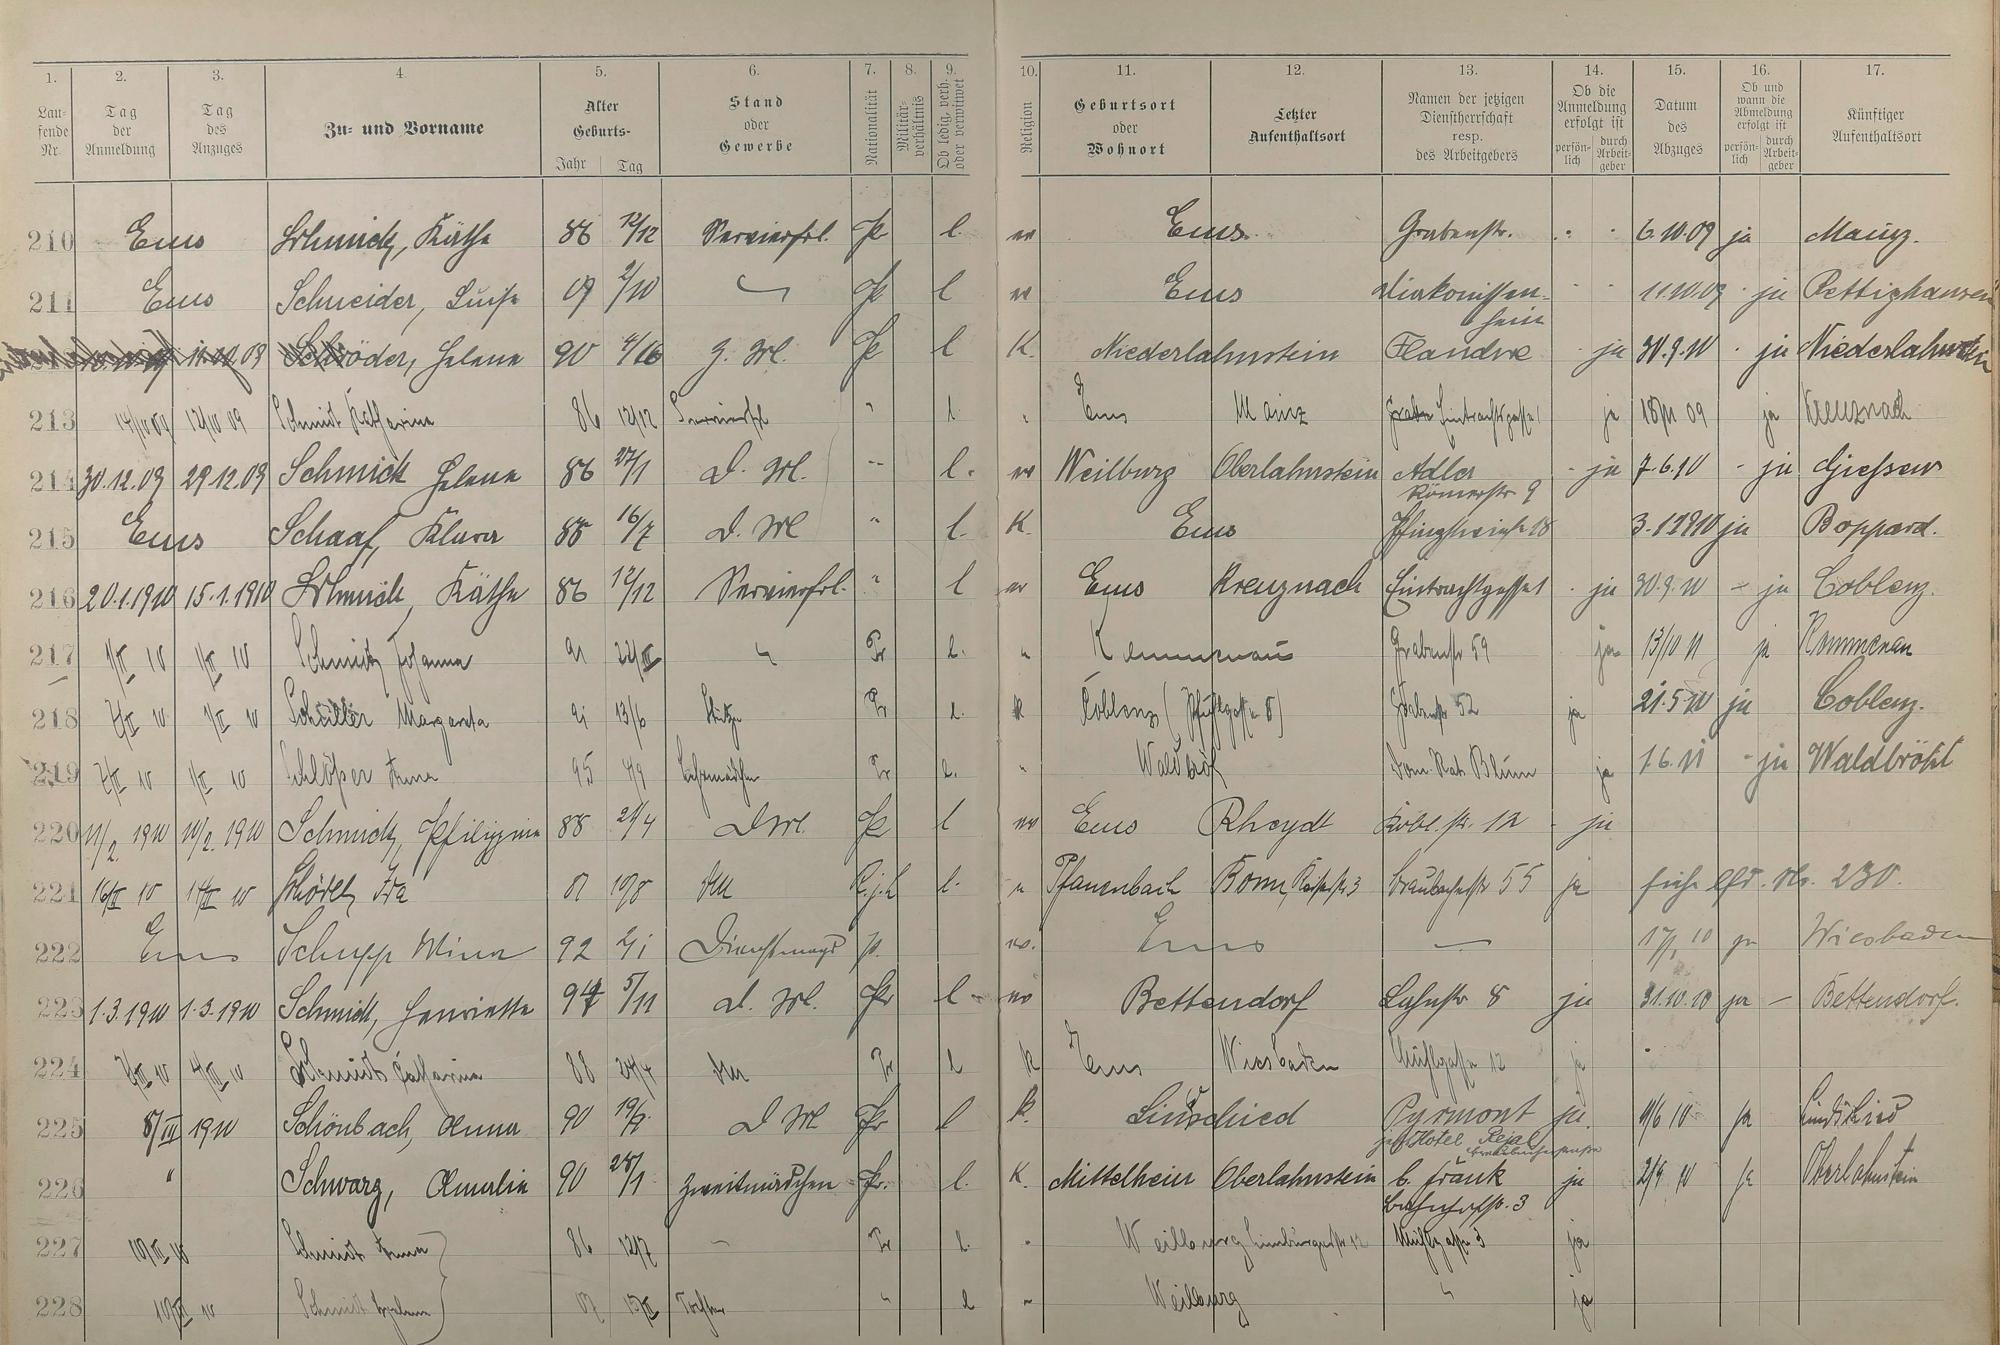 1. 2. 3. 4. 5. 6. 7. 8. 9. 10. 11. 12. 13. 14. 15. 16. 17.
Lau-fende Nr. Tag der Anmeldung Tag des Anzuges Zu- und Vorname Alter Geburts- Jahr Tag Stand oder Gewerbe Nationalität Militär-verhältnis Ob ledig, verh. oder verwitwet Religion Geburtsort oder Wohnort Letzter Aufenthaltsort Namen der jetzigen Dienstherrschaft resp. des Arbeitgebers Ob die Anmeldung erfolgt ist persön-lich durch Arbeit-geber Datum des Abzuges Ob und wann die Abmeldung erfolgt ist persön-lich durch Arbeit-geber Künftiger Aufenthaltsort
210 Ems Schmidt, Käthe 86 12/12 Servierfrl. Pr l. ev Ems Grabenstr. 6.10.09 ja Mainz.
211 Ems Schneider, Luise 09 2/10 Pr l ev Ems Diakonissen-heim 11.10.09 ja
09 Schröder, Helene 90 4/16 Pr l K. Niederlahnstein Flandre ja 30.9.10 ja Niederlahnstein
213 14/10 09 12/10 09 Schmidt Katharina 86 12/12 Servierfrl " l. " Ems Mainz Eintrachtgasse 1 ja 09 ja Kreuznach
214 30.12.09 29.12.09 Schmidt Helene 86 27/1 D. Md. l. ev Weilburg Oberlahnstein Adler Römerstr 9 ja 7.6.10 ja Giessen
215 Ems Schaaf, Klara 88 16/7 D. Md " l. K. Ems 18 3.1.1910 ja Boppard.
216 20.1.1910 15.1.1910 Schmidt, Käthe 86 12/12 Servierfrl. " l ev Ems Kreuznach Eintrachtgasse 1 ja 30.9.10 ja Coblenz.
217 1/II 10 1/II 10 Schmidt Johanna 91 22/III Pr l. " Kemmenau Grabenstr 59 ja 13/10 11 ja Kemmenau
218 2/II 10 1/II 10 Schüller Margareta 91 13/6 Stütze Pr l. K Coblenz Grabenstr 52 ja 21.5.10 ja Coblenz.
219 2/II 10 1/II 10 Schlösser Anna 95 4/9 Lehrmädchen Pr l. " Waldbröl Dom. Rat Blum ja 1.6.11 ja Waldbröhl
220 11/2. 1910 10/2. 1910 Schmidt, Philippine 88 21/4 D Md. Pr l ev Ems Rheydt Kobl. str. 12 ja
221 16/II 10 14/II 10 Ida 81 10/8 l. " Pfanenbach Bonn, Kaiserstr 3 Braubacherstr 55 ja siehe lfd. Nr. 230.
222 Ems Schupp Mina 92 2/1 Dienstmagd p. ev. Ems 17/ 10 ja Wiesbaden
223 1.3.1910 1.3.1910 Schmidt, Henriette 94 5/11 d. Md. Pr l ev Bettendorf Lahnstr 8 ja 31.10.10 ja Bettendorf.
224 10 4/III 10 Schmidt Catharina 88 24/4 Pr l K Ems Wiesbaden Mühlgasse 12 ja
225 8/III 1910 Schönbach, Anna 90 19/9. D Md Pr l K. Lindschied Pyrmont ja. 11/6 10 ja Lindschied
Hotel
226 " Schwarz, Amalie 90 28/1 Zweitmädchen Pr. l. K. Mittelheim Oberlahnstein b. Frank Bahnhofstr. 3 ja 2/9 10 ja Oberlahnstein
227 10/III 10 Schmidt Anna 86 12/7 Pr l. " Weilburg Limburgerstr 12 Mühlgasse 3 ja
228 10/III 10 Schmidt 07 Tochter " l " Weilburg " ja